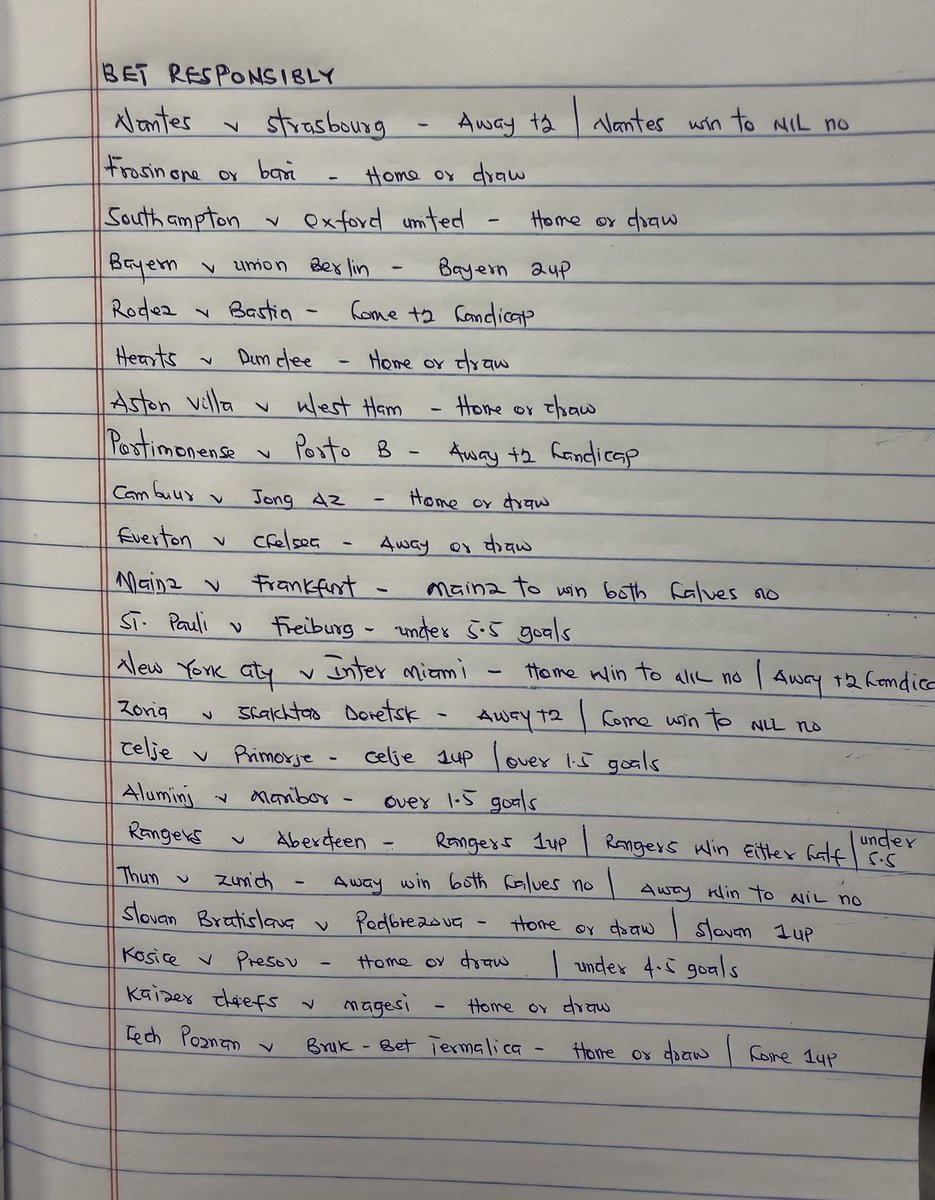 BET RESPONSIBLY
Nantes v Strasbourg - Away +2 | Nantes win to NIL no
Frosinone or bari - Home or draw
Southampton v Oxford united - Home or draw
Bayern v union Berlin - Bayern 2up
Rodez v Bastia - home +2 handicap
Hearts v Dundee - Home or draw
Aston Villa v West Ham - Home or draw
Portimonense v Porto B - Away +2 handicap
Cambuur v Jong AZ - Home or draw
Everton v Chelsea - Away or draw
Mainz v Frankfurt - mainz to win both halves no
ST. Pauli v Freiburg - under 5.5 goals
New York city v Inter miami - Home win to NIL no | Away +2 handica
Zoria v Shakhtar Donetsk - Away +2 | home win to NIL no
Celje v Primorje - Celje 1up | over 1.5 goals
Aluminj v maribor - over 1.5 goals
Rangers v Aberdeen - Rangers 1up | Rangers win Either half | under 5.5
Thun v Zurich - Away win both halves no | Away win to NIL no
Slovan Bratislava v Podbrezova - Home or draw | Slovan 1up
Kosice v Presov - Home or draw | under 4.5 goals
Kaizer chiefs v magesi - Home or draw
Lech Poznan v Bruk-Bet Termalica - Home or draw | home 1up